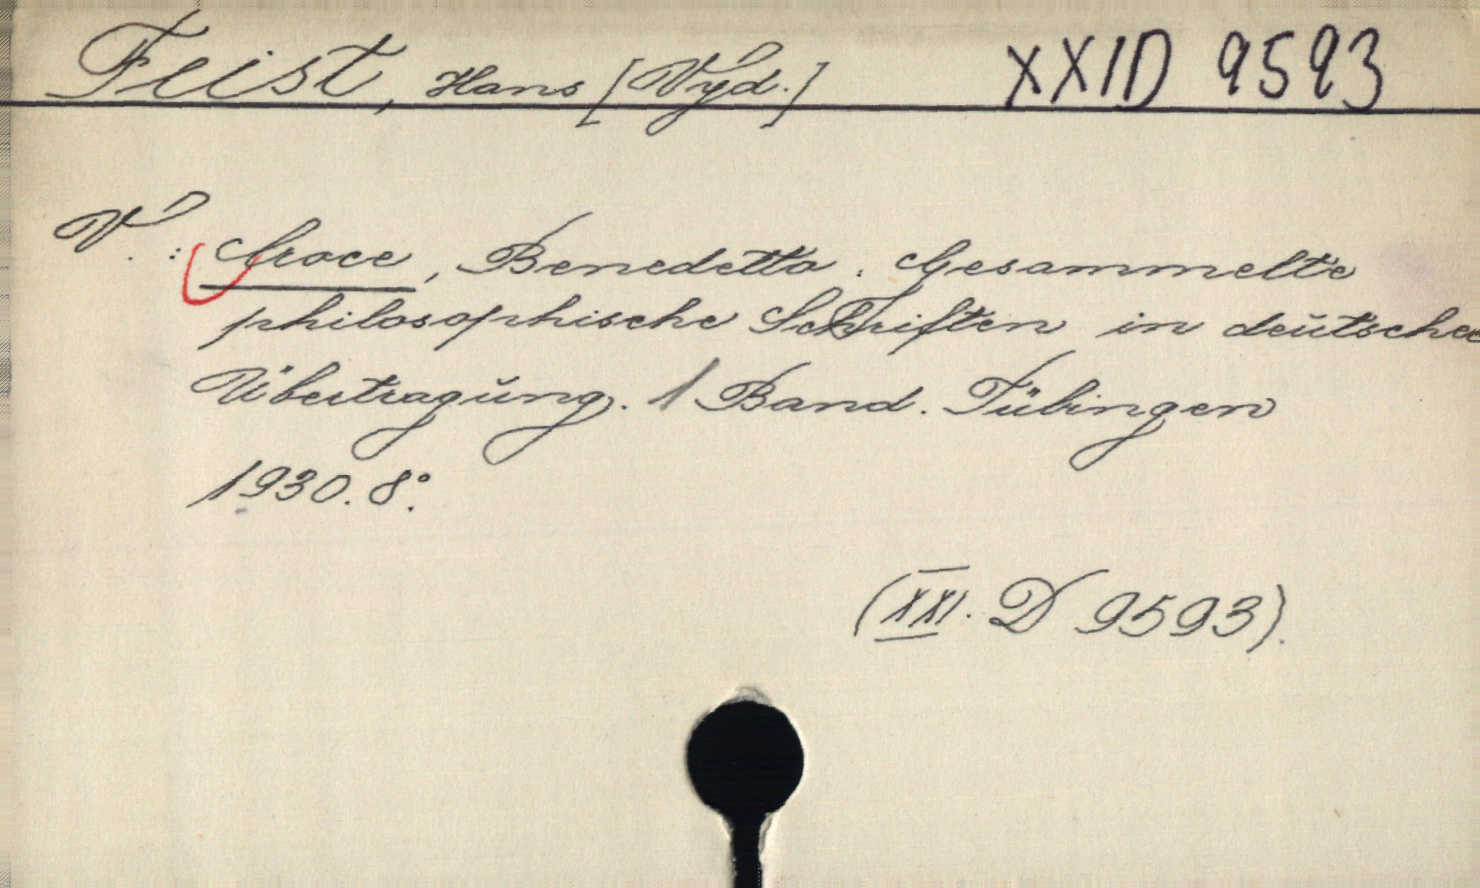 Feist, Hans [Vyd.] XXID 9593
V.: Croce, Benedetto. Gesammelte
philosophische Schriften in deutscher
Übertragung. 1 Band. Tübingen
1930. 8°.
(XXI. D 9593).